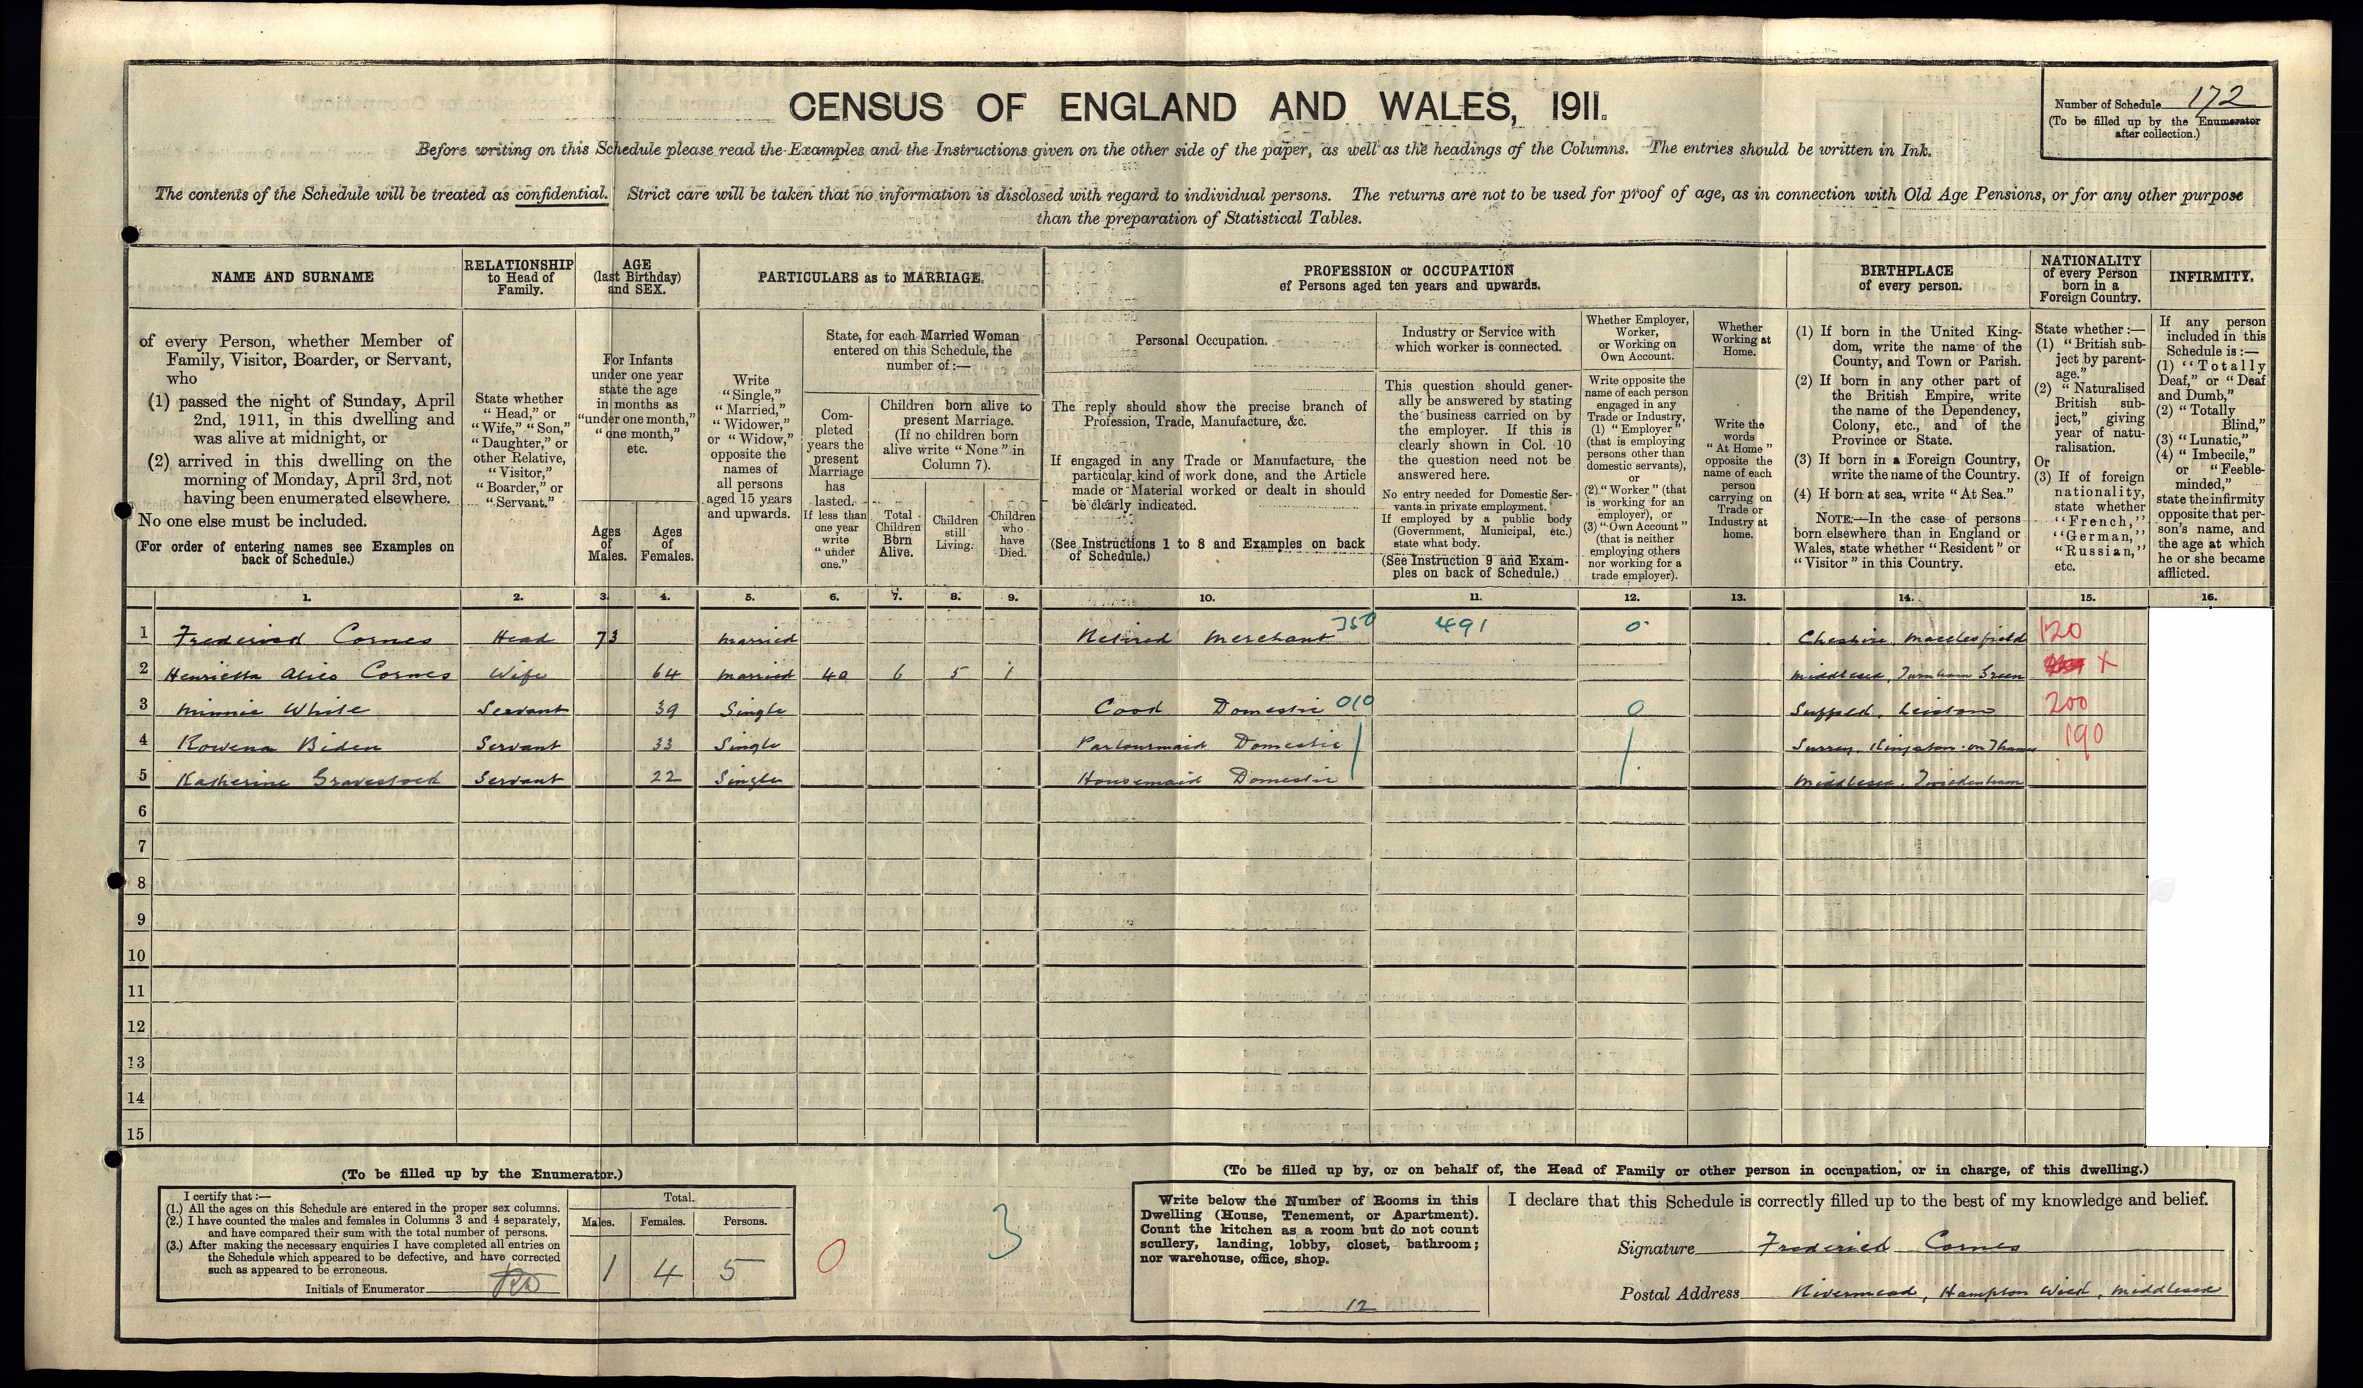 CENSUS OF ENGLAND AND WALES, 1911.
Number of Schedule 172
(To be filled up by the Enumerator
after collection.)
Before writing on this Schedule please read the Examples and the Instructions given on the other side of the paper, as well as the headings of the Columns. The entries should be written in Ink.
The contents of the Schedule will be treated as confidential. Strict care will be taken that no information is disclosed with regard to individual persons. The returns are not to be used for proof of age, as in connection with Old Age Pensions, or for any other purpose
than the preparation of Statistical Tables.
NAME AND SURNAME
of every Person, whether Member of
Family, Visitor, Boarder, or Servant,
who
(1) passed the night of Sunday, April
2nd, 1911, in this dwelling and
was alive at midnight, or
(2) arrived in this dwelling on the
morning of Monday, April 3rd, not
having been enumerated elsewhere.
No one else must be included.
(For order of entering names see Examples on
back of Schedule.)
RELATIONSHIP
to Head of
Family.
State whether
"Head," or
"Wife," "Son,"
"Daughter," or
other Relative,
"Visitor,"
"Boarder," or
"Servant."
AGE
(last Birthday)
and SEX.
For Infants
under one year
state the age
in months as
"under one month,"
"one month,"
etc.
Ages
of
Males.
Ages
of
Females.
PARTICULARS as to MARRIAGE.
Write
"Single,"
"Married,"
"Widower,"
or "Widow,"
opposite the
names of
all persons
aged 15 years
and upwards.
State, for each Married Woman
entered on this Schedule, the
number of:—
Com-
pleted
years the
present
Marriage
has
lasted.
If less than
one year
write
"under
one."
Children born alive to
present Marriage.
(If no children born
alive write "None" in
Column 7).
Total
Children
Born
Alive.
Children
still
Living.
Children
who
have
Died.
PROFESSION or OCCUPATION
of Persons aged ten years and upwards.
Personal Occupation.
The reply should show the precise branch of
Profession, Trade, Manufacture, &c.
If engaged in any Trade or Manufacture, the
particular kind of work done, and the Article
made or Material worked or dealt in should
be clearly indicated.
(See Instructions 1 to 8 and Examples on back
of Schedule.)
Industry or Service with
which worker is connected.
This question should gener-
ally be answered by stating
the business carried on by
the employer. If this is
clearly shown in Col. 10
the question need not be
answered here.
No entry needed for Domestic Ser-
vants in private employment.
If employed by a public body
(Government, Municipal, etc.)
state what body.
(See Instruction 9 and Exam-
ples on back of Schedule.)
Whether Employer,
Worker,
or Working on
Own Account.
Write opposite the
name of each person
engaged in any
Trade or Industry,
(1) "Employer"
(that is employing
persons other than
domestic servants),
or
(2) "Worker" (that
is working for an
employer), or
(3) "Own Account"
(that is neither
employing others
nor working for a
trade employer).
Whether
Working at
Home.
Write the
words
"At Home"
opposite the
name of each
person
carrying on
Trade or
Industry at
home.
BIRTHPLACE
of every person.
(1) If born in the United King-
dom, write the name of the
County, and Town or Parish.
(2) If born in any other part of
the British Empire, write
the name of the Dependency,
Colony, etc., and of the
Province or State.
(3) If born in a Foreign Country,
write the name of the Country.
(4) If born at sea, write "At Sea."
NOTE:—In the case of persons
born elsewhere than in England or
Wales, state whether "Resident" or
"Visitor" in this Country.
NATIONALITY
of every Person
born in a
Foreign Country.
State whether:—
(1) "British sub-
ject by parent-
age."
(2) "Naturalised
British sub-
ject," giving
year of natu-
ralisation.
Or
(3) If of foreign
nationality,
state whether
"French,"
"German,"
"Russian,"
etc.
INFIRMITY.
If any person
included in this
Schedule is:—
(1) "Totally
Deaf," or "Deaf
and Dumb,"
(2) "Totally
Blind,"
(3) "Lunatic,"
(4) "Imbecile,"
or "Feeble-
minded,"
state the infirmity
opposite that per-
son's name, and
the age at which
he or she became
afflicted.
1. 2. 3. 4. 5. 6. 7. 8. 9. 10. 11. 12. 13. 14. 15. 16.
1 Frederick Cornes Head 73 Married Retired Merchant 350 491 0 Cheshire, Macclesfield 120
2 Henrietta Alice Cornes Wife 64 Married 40 6 5 1 Middlesex, Turnham Green X
3 Minnie White Servant 39 Single Cook Domestic 010 0 Suffolk, Leiston 200
4 Rowena Biden Servant 33 Single Parlourmaid Domestic Surrey, Kingston-on-Thames 190
5 Katherine Gravestock Servant 22 Single Housemaid Domestic Middlesex, Twickenham
6
7
8
9
10
11
12
13
14
15
(To be filled up by the Enumerator.)
I certify that:—
(1.) All the ages on this Schedule are entered in the proper sex columns.
(2.) I have counted the males and females in Columns 3 and 4 separately,
and have compared their sum with the total number of persons.
(3.) After making the necessary enquiries I have completed all entries on
the Schedule which appeared to be defective, and have corrected
such as appeared to be erroneous.
Initials of Enumerator
Total.
Males. Females. Persons.
1 4 5
0
3
(To be filled up by, or on behalf of, the Head of Family or other person in occupation, or in charge, of this dwelling.)
Write below the Number of Rooms in this
Dwelling (House, Tenement, or Apartment).
Count the kitchen as a room but do not count
scullery, landing, lobby, closet, bathroom;
nor warehouse, office, shop.
12
I declare that this Schedule is correctly filled up to the best of my knowledge and belief.
Signature Frederick Cornes
Postal Address Rivermead, Hampton Wick, Middlesex